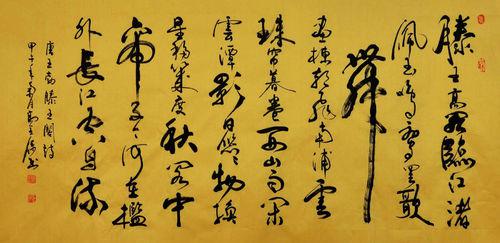 滕王高閣臨江渚
佩玉鳴鸞罷歌
舞
畫棟朝飛南浦雲
珠帘暮卷西山雨閑
雲潭影日悠悠物換
星移幾度秋閣中
帝子今何在檻
外長江空自流
唐王勃滕王閣詩